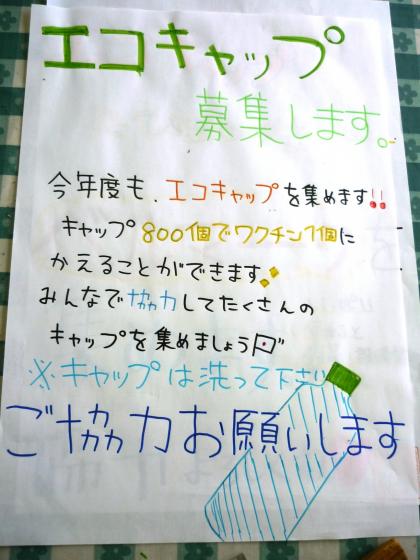 エコキャップ
募集します。
今年度も、エコキャップを集めます!!
キャップ800個でワクチン1個に
かえることができます!
みんなで協力してたくさんの
キャップを集めましょう
※キャップは洗って下さい
ご協力お願いします